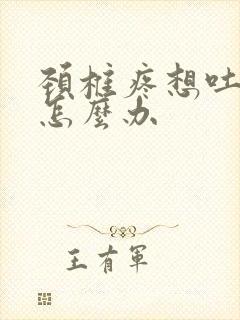 頚椎疼想吐
怎麼办
王有軍